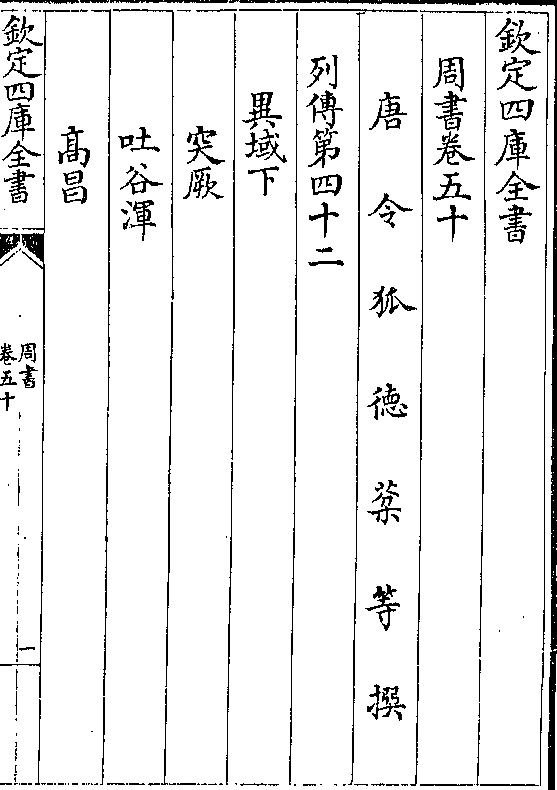 欽定四庫全書
周書卷五十
唐令狐德棻等撰
列傳第四十二
異域下
突厥
吐谷渾
高昌
欽定四庫全書
周書
卷五十
一